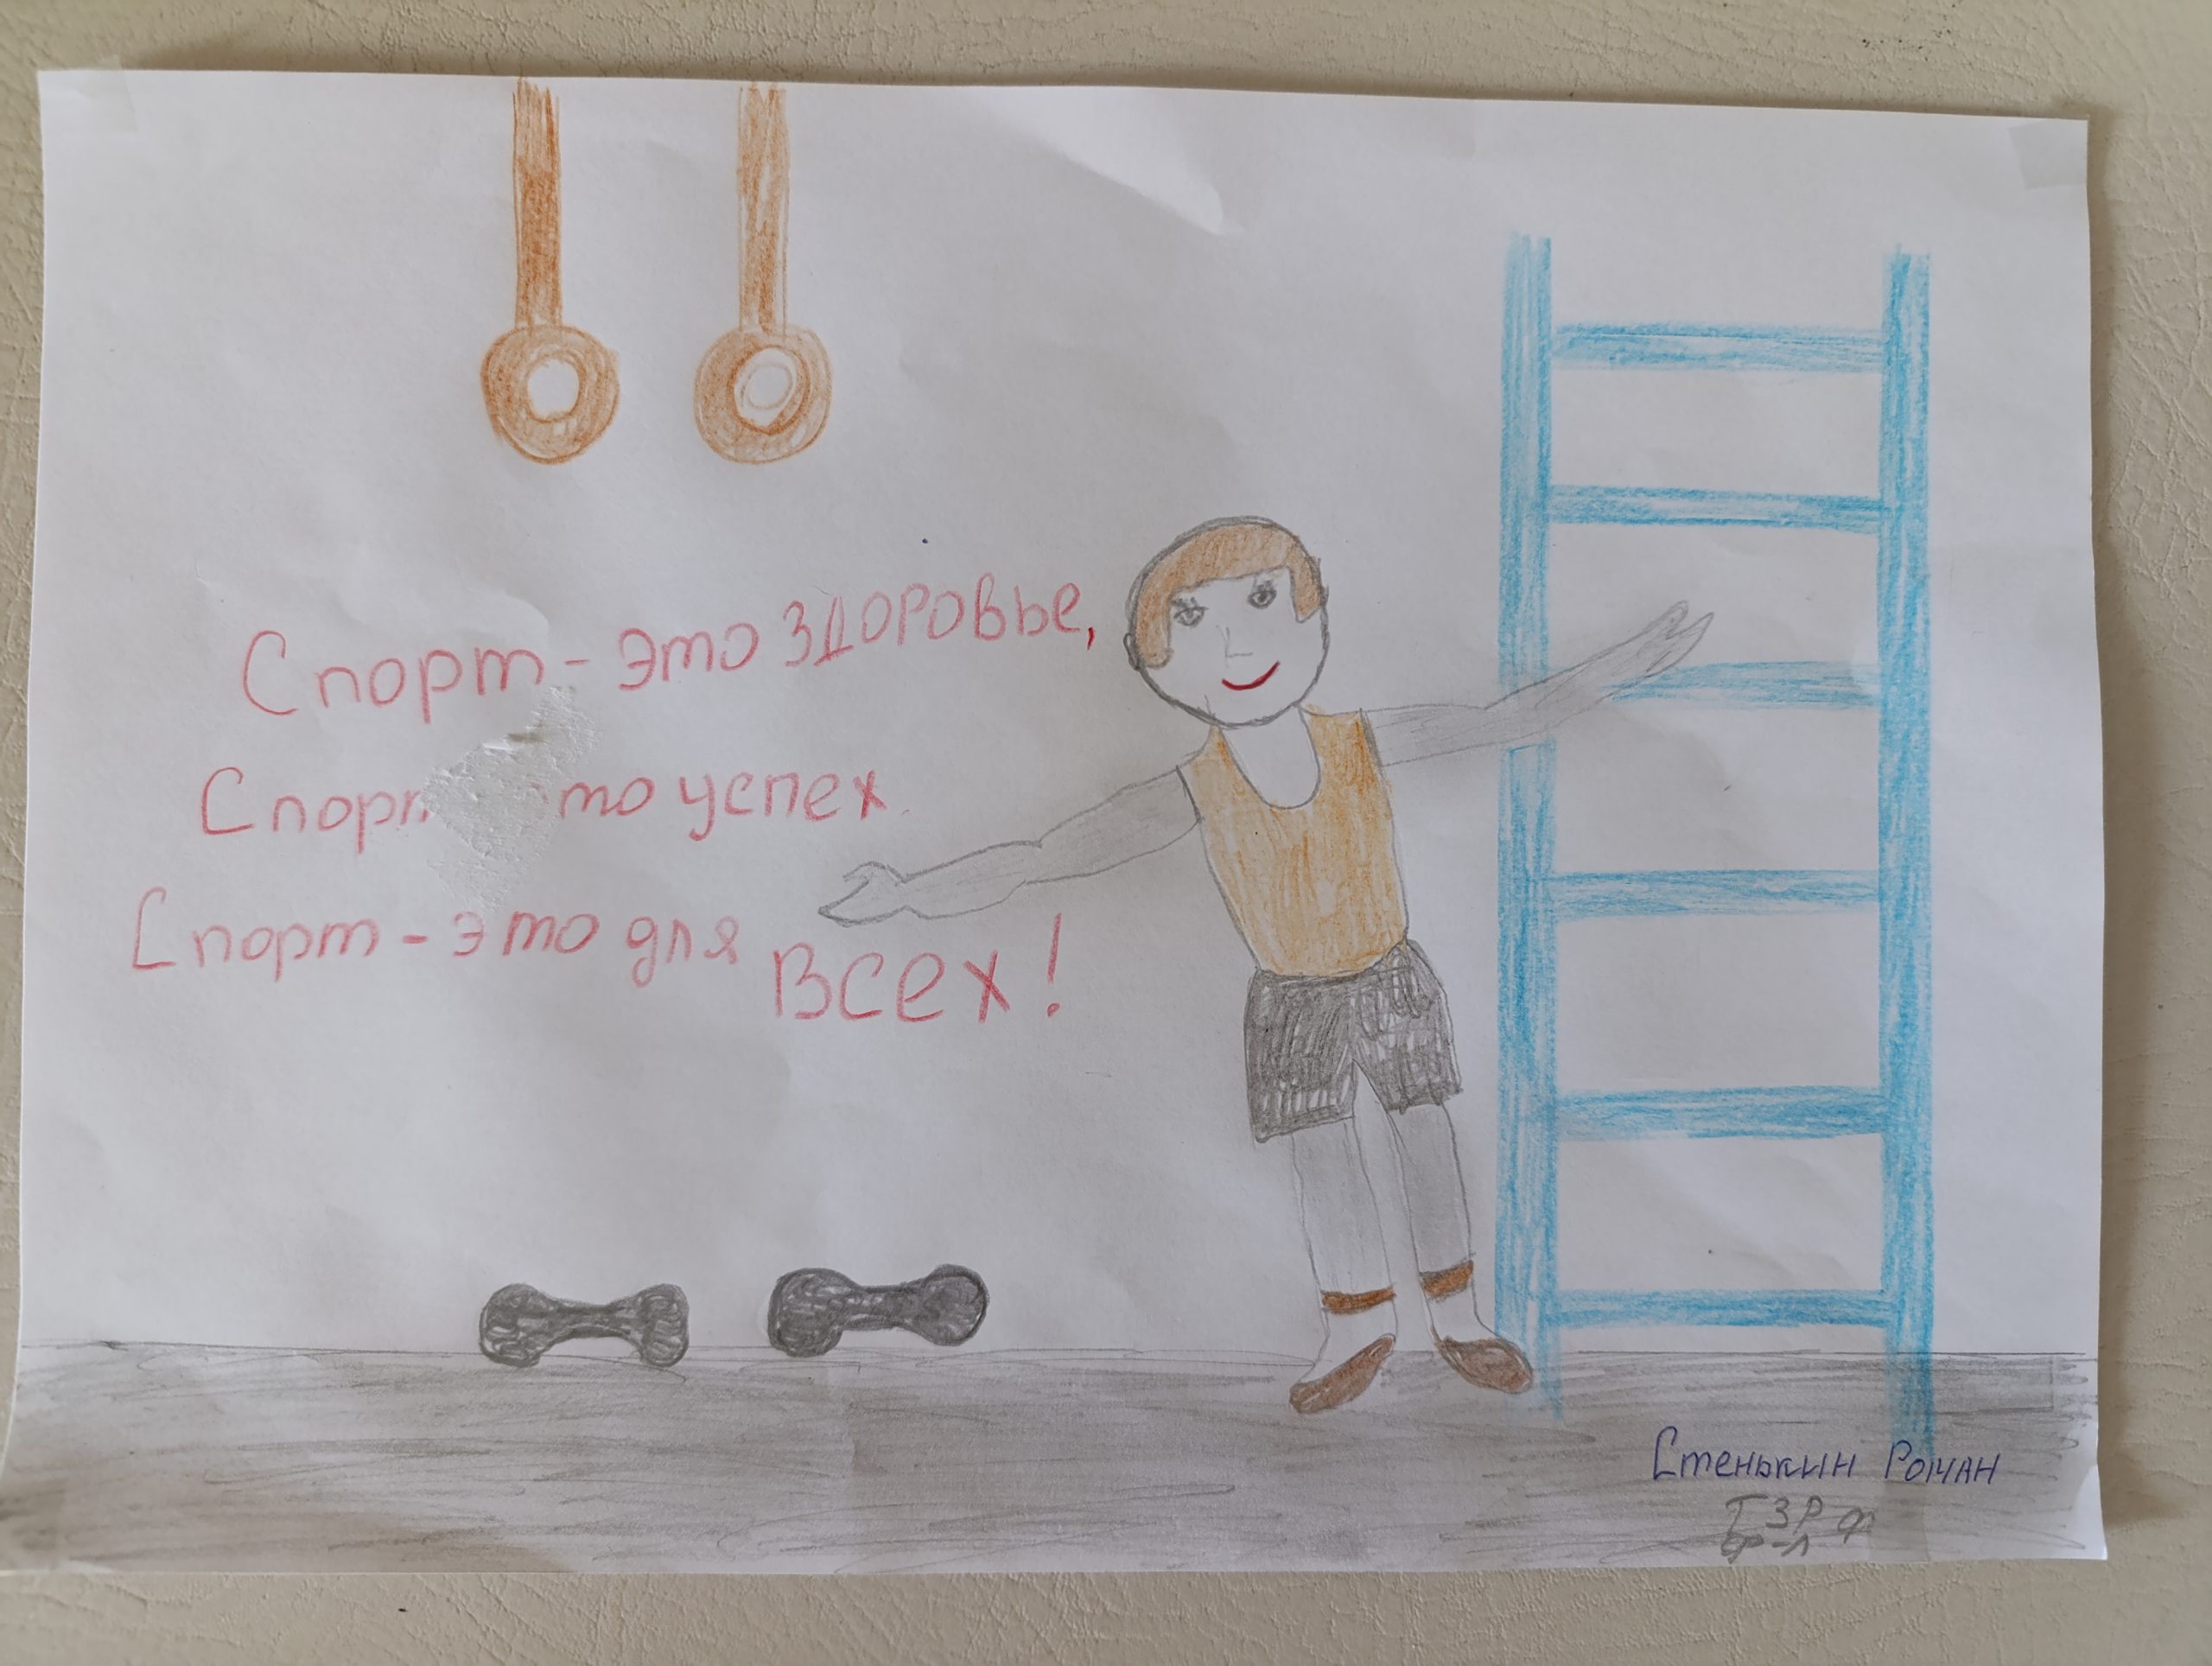 Спорт - это ЗДОРОВЬЕ,
то успех.
Спорт - это для ВСЕХ!
Стенькин РОМАН